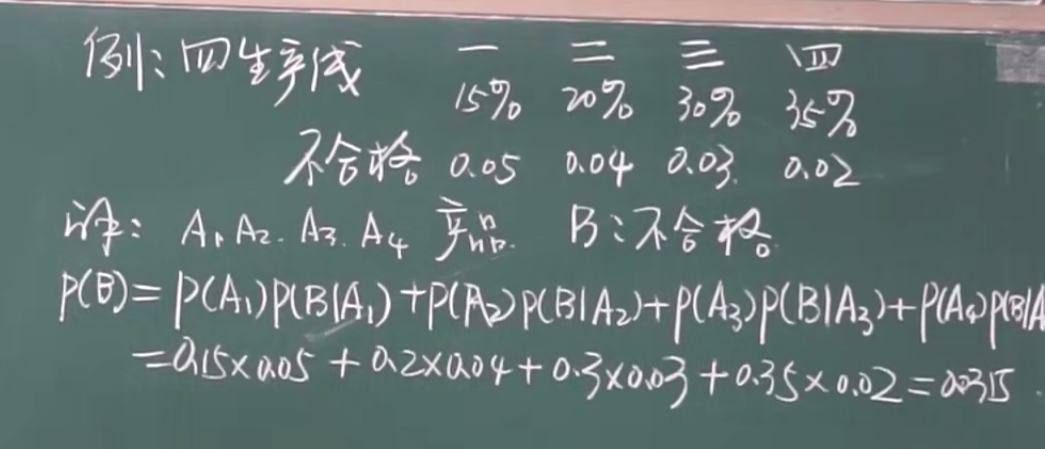 例:四生产线 一 二 三 四
15% 20% 30% 35%
不合格 0.05 0.04 0.03 0.02
解: A₁ A₂. A₃. A₄ 产品. B:不合格
P(B)=P(A₁)P(B|A₁)+P(A₂)P(B|A₂)+P(A₃)P(B|A₃)+P(A₄)P(B|A
=0.15×0.05+0.2×0.04+0.3×0.03+0.35×0.02=0.0315.